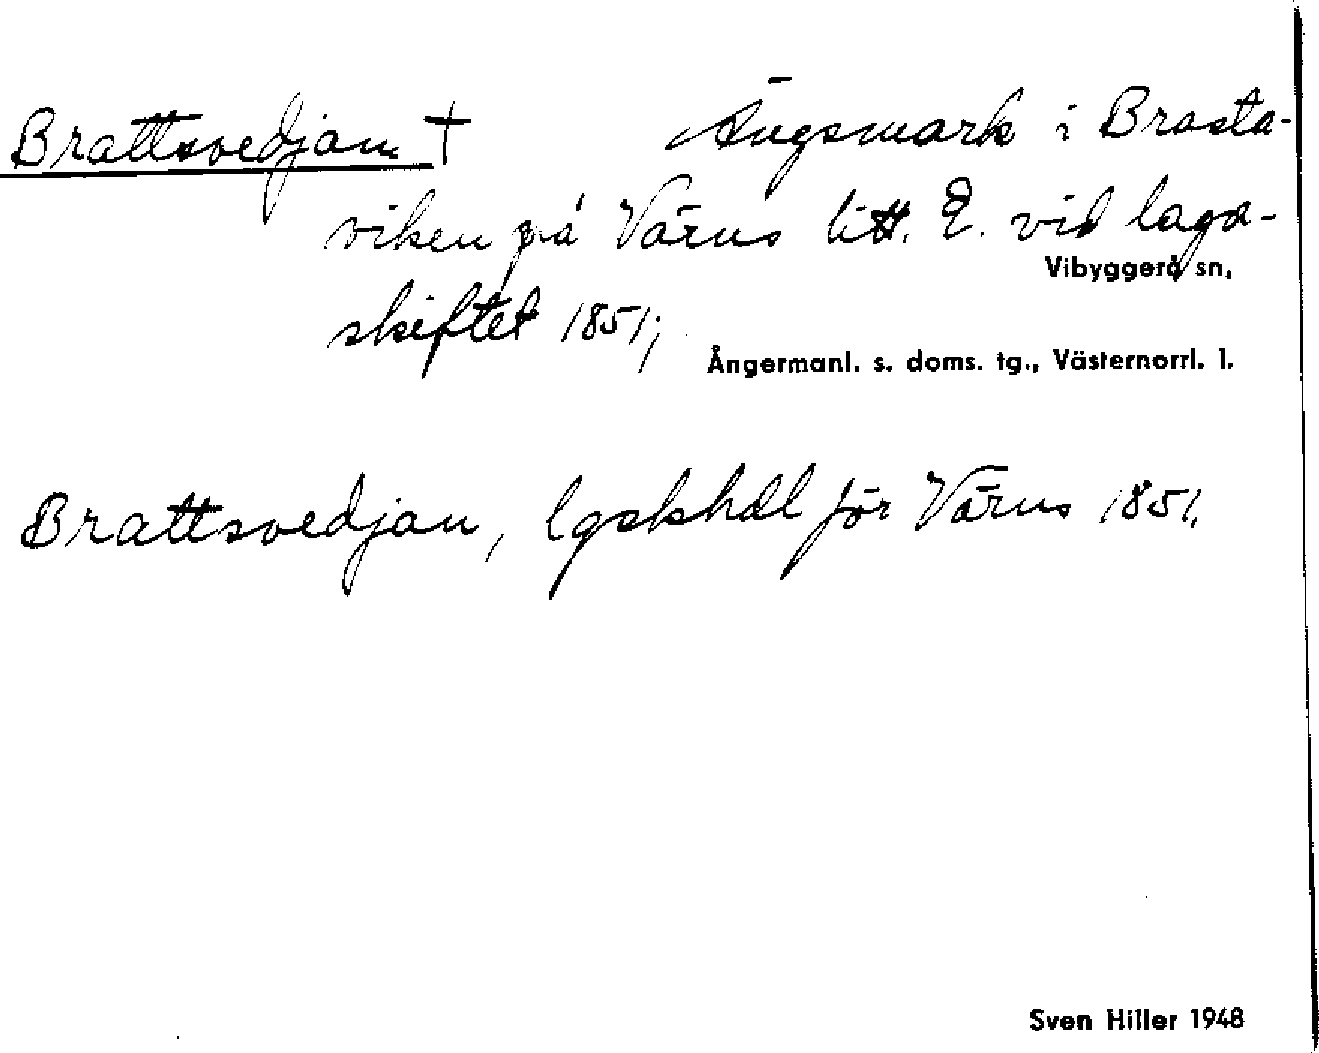 Brattsvedjan † Ängsmark i Brasta-
viken på Värns litt. E. vid laga-
Vibyggerå sn,
skiftet 1851;
Ångermanl. s. doms. tg., Västernorrl. l.
Brattsvedjan, lgskhdl för Värns 1851.
Sven Hiller 1948